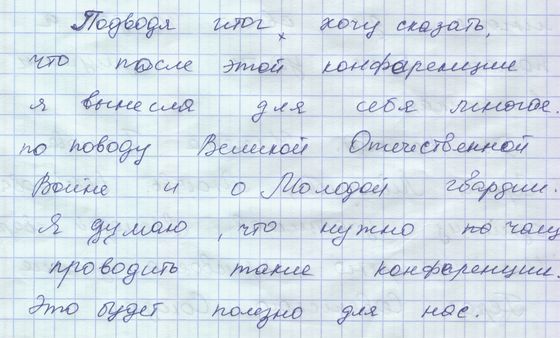 Подводя итог, хочу сказать,
что после этой конференции
я вынесла для себя многое.
по поводу Великой Отечественной
Войне и о Молодой гвардии.
Я думаю, что нужно по чащу
проводить такие конференции.
Это будет полезно для нас.